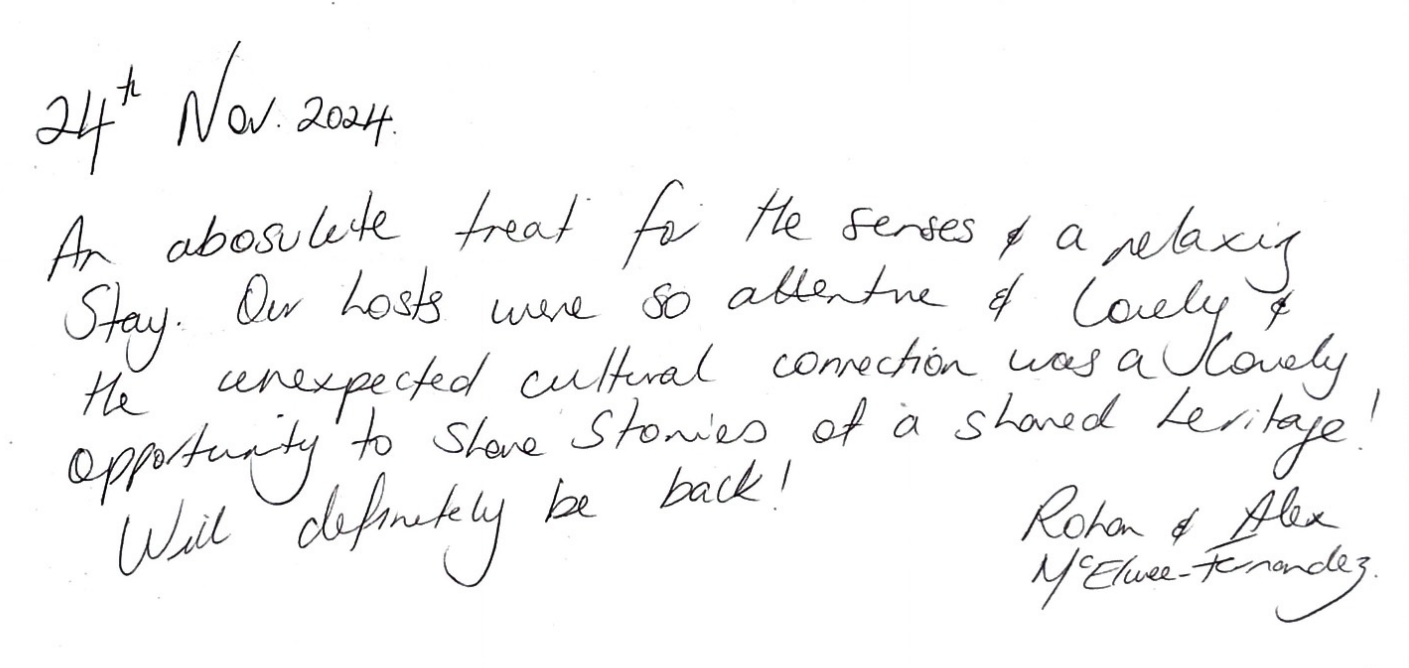 24th Nov. 2024.
An abosulute treat for the senses & a relaxing
Stay. Our hosts were so attentive & lovely &
the unexpected cultural connection was a lovely
opportunity to share stories of a shared heritage!
Will definetely be back!
Rohan & Alex
McElwee-Fernandez.